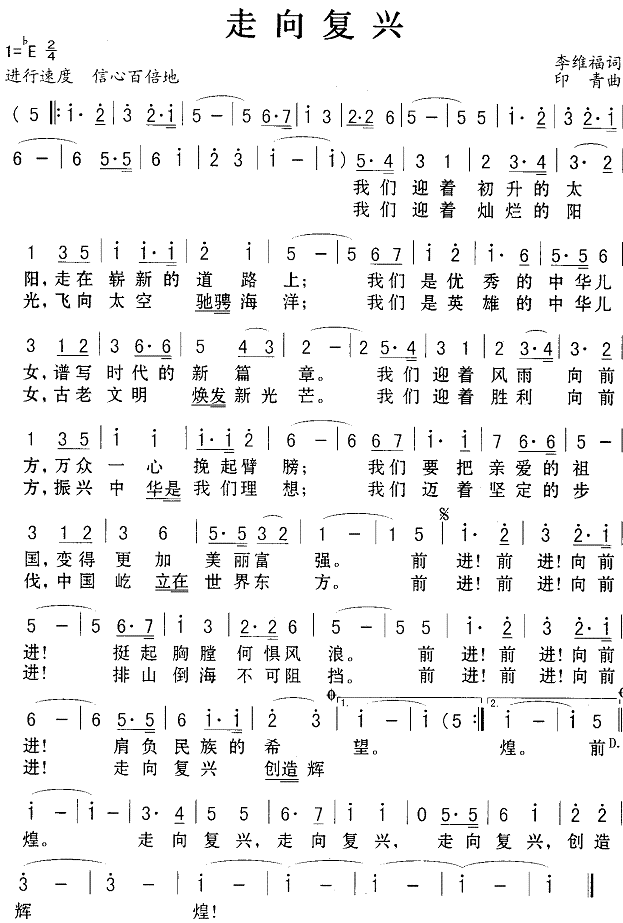 走向复兴
1=♭E 2/4
进行速度 信心百倍地
李维福词
印青曲
(5 ‖: i· 2 | 3 2·i | 5 – | 5 6·7 | i 3 | 2·2 6 | 5 – | 5 5 | i· 2 | 3 2·i |
6 – | 6 5·5 | 6 i | 2 3 | i – | i) 5·4 | 3 1 | 2 3·4 | 3· 2 |
我们 迎着 初升的太
我们 迎着 灿烂的阳
1 3 5 | i i·i | 2 i | 5 – | 5 6 7 | i 2 | i· i | 5·5 6 |
阳,走在 崭新的 道路上; 我们 是优 秀的 中华儿
光,飞向 太空 驰骋 海洋; 我们 是英 雄的 中华儿
3 1 2 | 3 6·6 | 5 4 3 | 2 – | 2 5·4 | 3 1 | 2 3·4 | 3· 2 |
女,谱写 时代的 新篇章。 我们 迎着 风雨 向前
女,古老 文明 焕发 新光芒。 我们 迎着 胜利 向前
1 3 5 | i i | i·i 2 | 6 – | 6 6 7 | i· i | 7 6·6 | 5 – |
方,万众 一心 挽起臂膀; 我们 要把 亲爱的祖
方,振兴 中华是 我们理想; 我们 迈着 坚定的步
3 1 2 | 3 6 | 5·5 3 2 | 1 – | 1 5 | i· 2 | 3 2·i |
国,变得 更加 美丽富强。 前进!前进!向前
伐,中国 屹立在 世界东方。 前进!前进!向前
5 – | 5 6·7 | i 3 | 2·2 6 | 5 – | 5 5 | i· 2 | 3 2·i |
进! 挺起 胸膛 何惧风浪。 前进!前进!向前
进! 排山 倒海 不可阻挡。 前进!前进!向前
6 – | 6 5·5 | 6 i·i | 2 3 | 1. i – | i (5 :‖ 2. i – | i 5 ‖
进! 肩负 民族的 希望。 煌。 前 D.
进! 走向 复兴 创造辉
i – | i – | 3· 4 | 5 5 | 6· 7 | i i | 0 5·5 | 6 i | 2 2 |
煌。 走向复兴,走向复兴, 走向复兴,创造
3 – | 3 – | i – | i – | i – | i ‖
辉 煌!